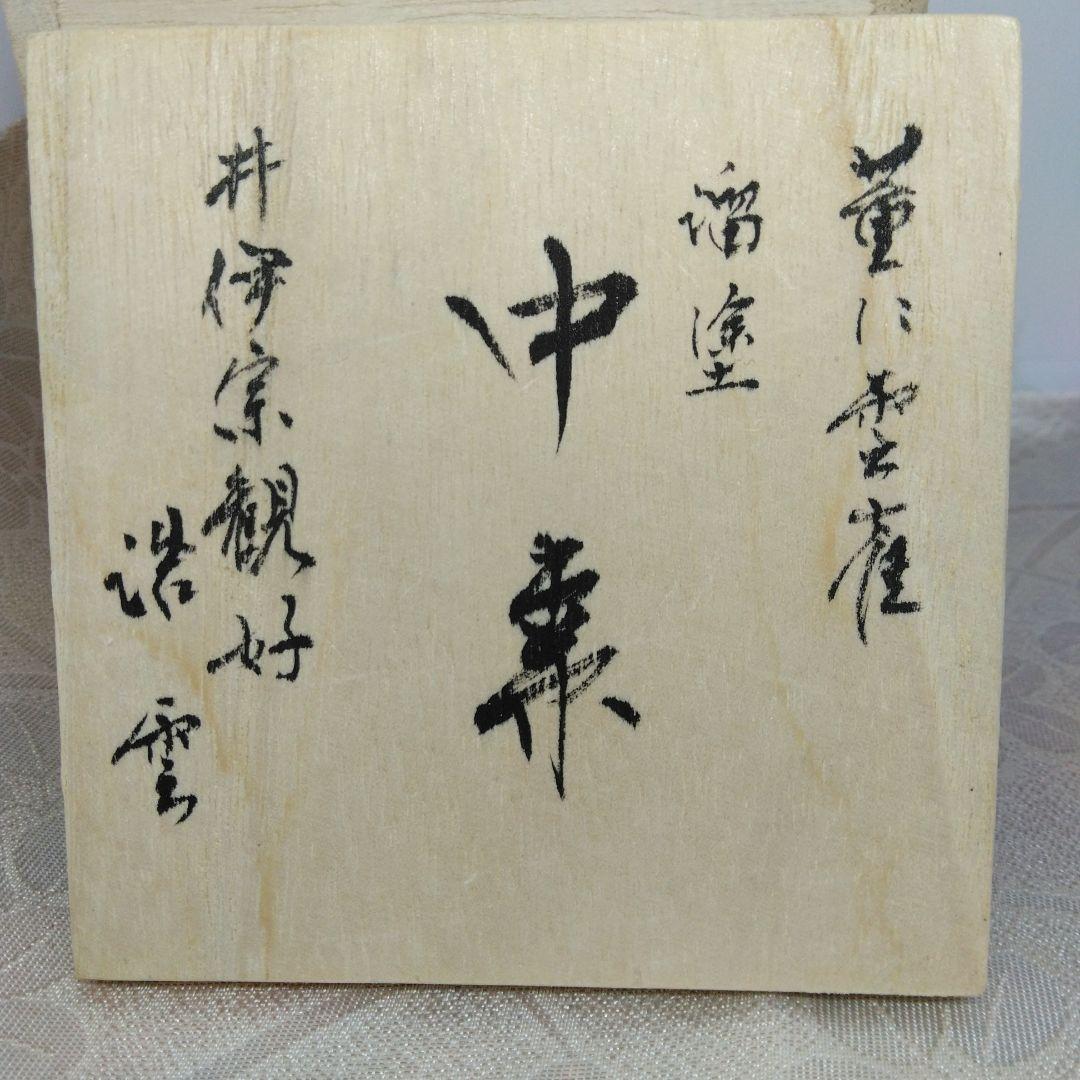 菫に雲雀
溜塗
中棗
井伊宗観好
浩雲